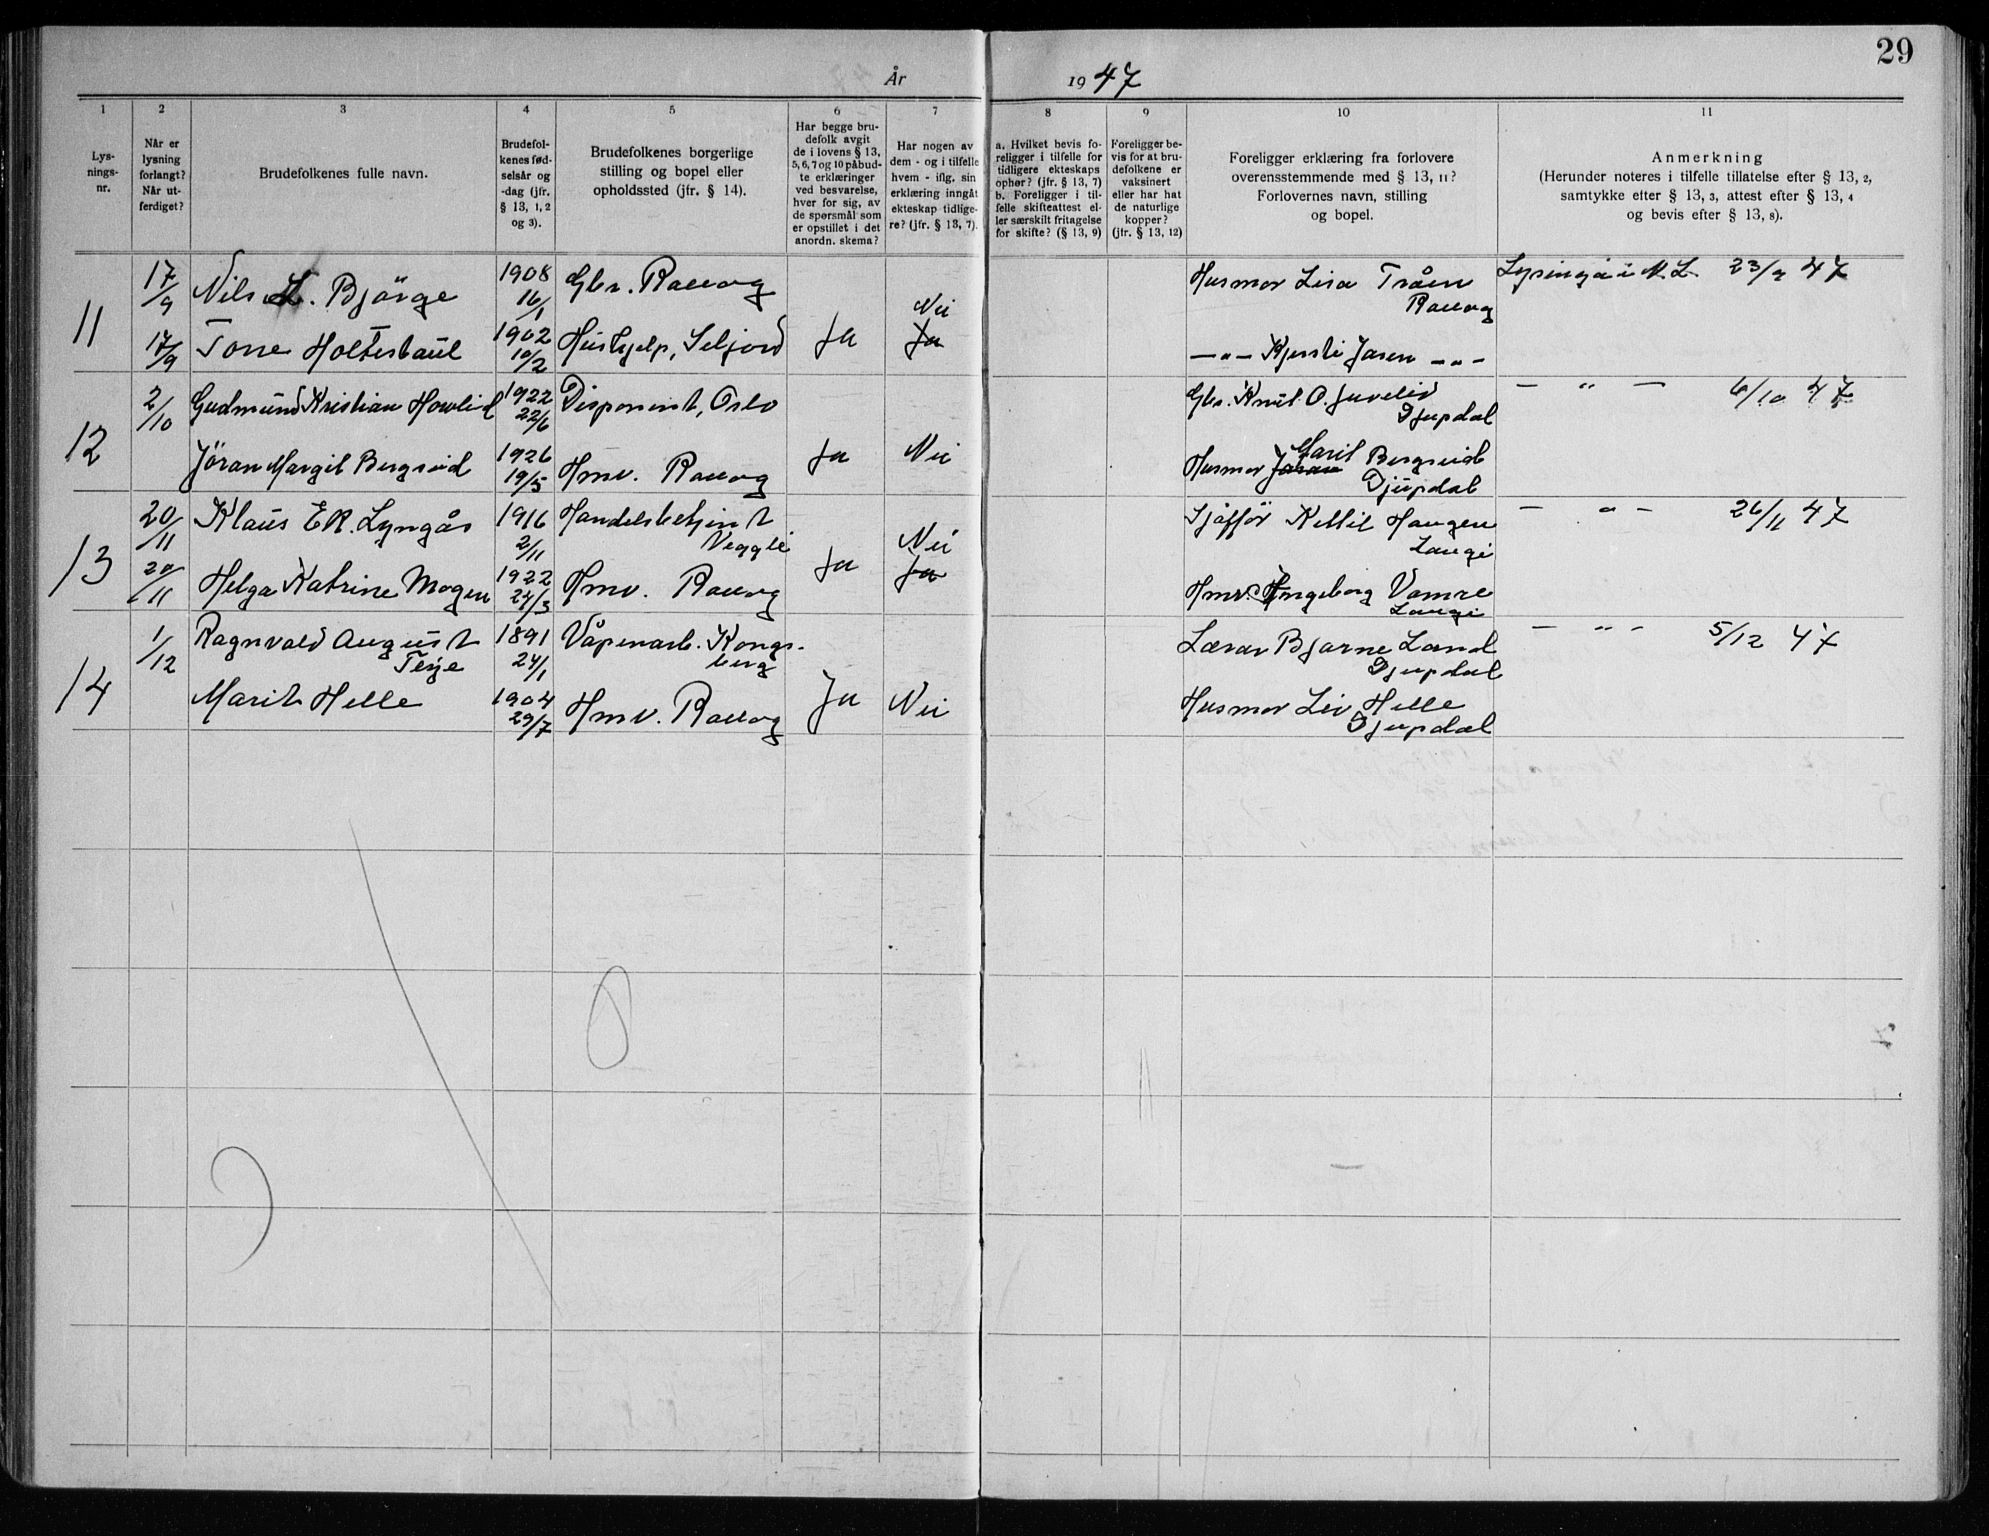 29
År 1947
1
2
3
4
5
6
7
8
9
10
11
Lys-
nings-
nr.
Når er
lysning
forlangt?
Når ut-
ferdiget?
Brudefolkenes fulle navn.
Brudefol-
kenes fød-
selsår og
-dag (jfr.
§ 13, 1, 2
og 3).
Brudefolkenes borgerlige
stilling og bopel eller
opholdssted (jfr. § 14).
Har begge bru-
defolk avgit
de i lovens § 13,
5, 6, 7 og 10 påbud-
te erklæringer
ved besvarelse,
hver for sig, av
de spørsmål som
er opstillet i det
anordn. skema?
Har nogen av
dem - og i tilfelle
hvem - iflg. sin
erklæring inngåt
ekteskap tidlige-
re? (jfr. § 13, 7).
a. Hvilket bevis fo-
religger i tilfelle for
tidligere ekteskaps
ophør? (jfr. § 13, 7)
b. Foreligger i til-
felle skifteattest el-
ler særskilt fritagelse
for skifte? (§ 13, 9)
Foreligger be-
vis for at bru-
defolkene er
vaksinert
eller har hat
de naturlige
kopper?
(jfr. § 13, 12)
Foreligger erklæring fra forlovere
overensstemmende med § 13, 11?
Forlovernes navn, stilling
og bopel.
Anmerkning
(Herunder noteres i tilfelle tillatelse efter § 13, 2,
samtykke efter § 13, 3, attest efter § 13, 4
og bevis efter § 13, 8).
11
17/9 Nils L. Bjørge 1908 16/1 Gbr. Rollag
Husmor Lisa Tråen
Rollag
Lysingå i N. L. 23/9 47
17/9 Tone Holtesbaul 1902 10/2 Hushjelp, Seljord Ja Nei Ja
— " — Kjersti Jaren — " —
12
2/10 Gudmund Kristian Howlid 1922 22/6 Disponent, Oslo
Gbr. Knut O. Juvelid
Djupdal
— " — 6/10 47
Jöran Margit Bergseid 1926 19/5 Hmv. Rollag Ja Nei
Husmor Jöran Marit Bergseid
Djupdal
13
20/11 Klaus E.K. Lyngås 1916 2/11 Handelsbetjent
Veggli
Sjåffør Kittil Haugen
Laugi
— " — 26/11 47
20/11 Helga Katrine Mogen 1922 24/3 Hmv. Rollag Ja Nei Ja
Hmv. Ingeborg Vamre
Laugi
14
1/12 Ragnvald August
Terje 1891 24/1 Våpenarb. Kongs-
berg
Lærar Bjarne Land
Djupdal
— " — 5/12 47
Marit Helle 1904 29/7 Hmv. Rollag Ja Nei
Husmor Liv Helle
Djupdal